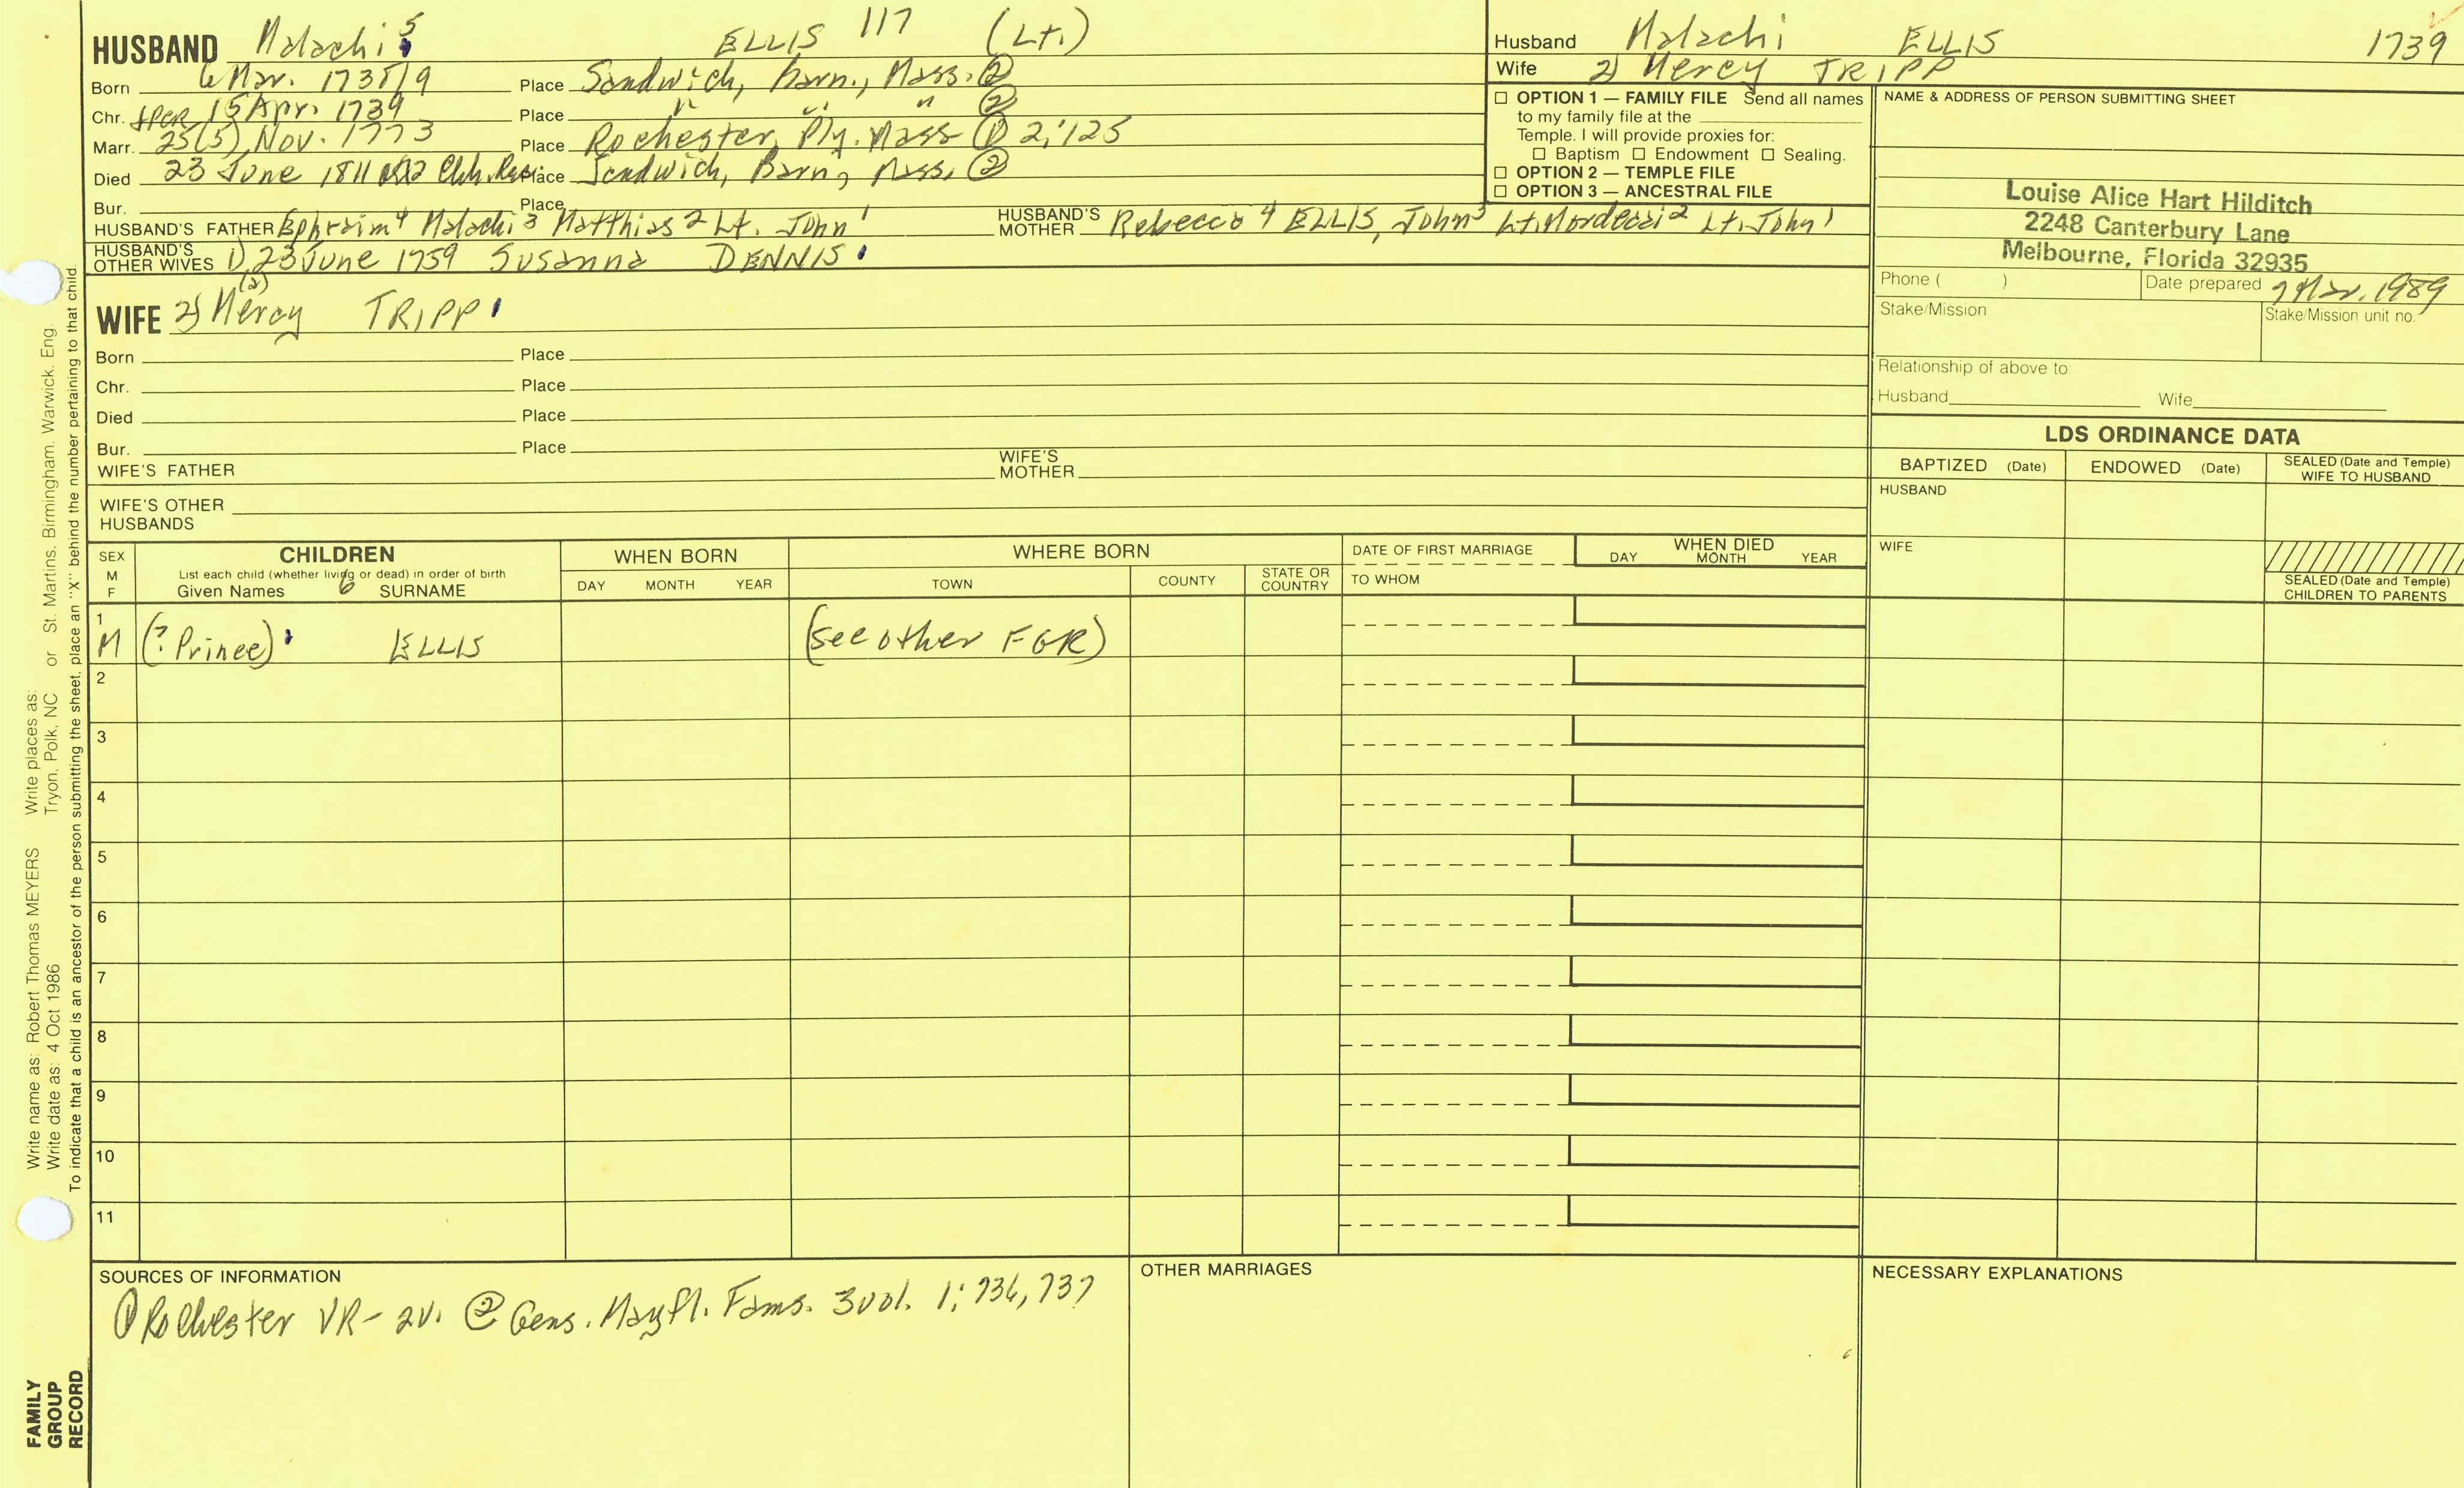 HUSBAND Malachi 5 ELLIS 117 (Lt.)
Born 6 Mar. 1738/9 Place Sandwich, Barn., Mass. ②
Chr. 15 Apr. 1739 Place " " " ②
Marr. 25(5) Nov. 1773 Place Rochester, Ply. Mass ① 2:125
Died 23 June 1811 Place Sandwich, Barn, Mass. ②
Bur. Place
HUSBAND'S FATHER Ephraim 4 Malachi 3 Matthias 2 Lt. John 1 HUSBAND'S MOTHER Rebecca 4 ELLIS, John 3 Lt. Mordecai 2 Lt. John 1
HUSBAND'S OTHER WIVES 1) 23 June 1759 Susanna DENNIS
(2)
WIFE 2) Mercy TRIPP
Born Place
Chr. Place
Died Place
Bur. Place
WIFE'S FATHER WIFE'S MOTHER
WIFE'S OTHER HUSBANDS
Husband Malachi ELLIS 1739
Wife 2) Mercy TRIPP
☐ OPTION 1 — FAMILY FILE Send all names
to my family file at the
Temple. I will provide proxies for:
☐ Baptism ☐ Endowment ☐ Sealing.
☐ OPTION 2 — TEMPLE FILE
☐ OPTION 3 — ANCESTRAL FILE
NAME & ADDRESS OF PERSON SUBMITTING SHEET
Louise Alice Hart Hilditch
2248 Canterbury Lane
Melbourne, Florida 32935
Phone ( ) Date prepared 7 Mar. 1989
Stake/Mission Stake/Mission unit no.
Relationship of above to
Husband Wife
LDS ORDINANCE DATA
BAPTIZED (Date) ENDOWED (Date) SEALED (Date and Temple) WIFE TO HUSBAND
HUSBAND
WIFE
SEALED (Date and Temple) CHILDREN TO PARENTS
SEX M F
CHILDREN
List each child (whether living or dead) in order of birth
Given Names 6 SURNAME
WHEN BORN
DAY MONTH YEAR
WHERE BORN
TOWN COUNTY STATE OR COUNTRY
DATE OF FIRST MARRIAGE
TO WHOM
WHEN DIED
DAY MONTH YEAR
1 M (? Prince) ELLIS (see other FGR)
2
3
4
5
6
7
8
9
10
11
SOURCES OF INFORMATION
① Rochester VR - 2v. ② Gens. Mayfl. Fams. 3vol. 1:736, 737
OTHER MARRIAGES
NECESSARY EXPLANATIONS
Write name as: Robert Thomas MEYERS Write places as:
Write date as: 4 Oct 1986 Tryon, Polk, NC or St. Martins, Birmingham. Warwick. Eng.
To indicate that a child is an ancestor of the person submitting the sheet, place an "X" behind the number pertaining to that child.
FAMILY
GROUP
RECORD